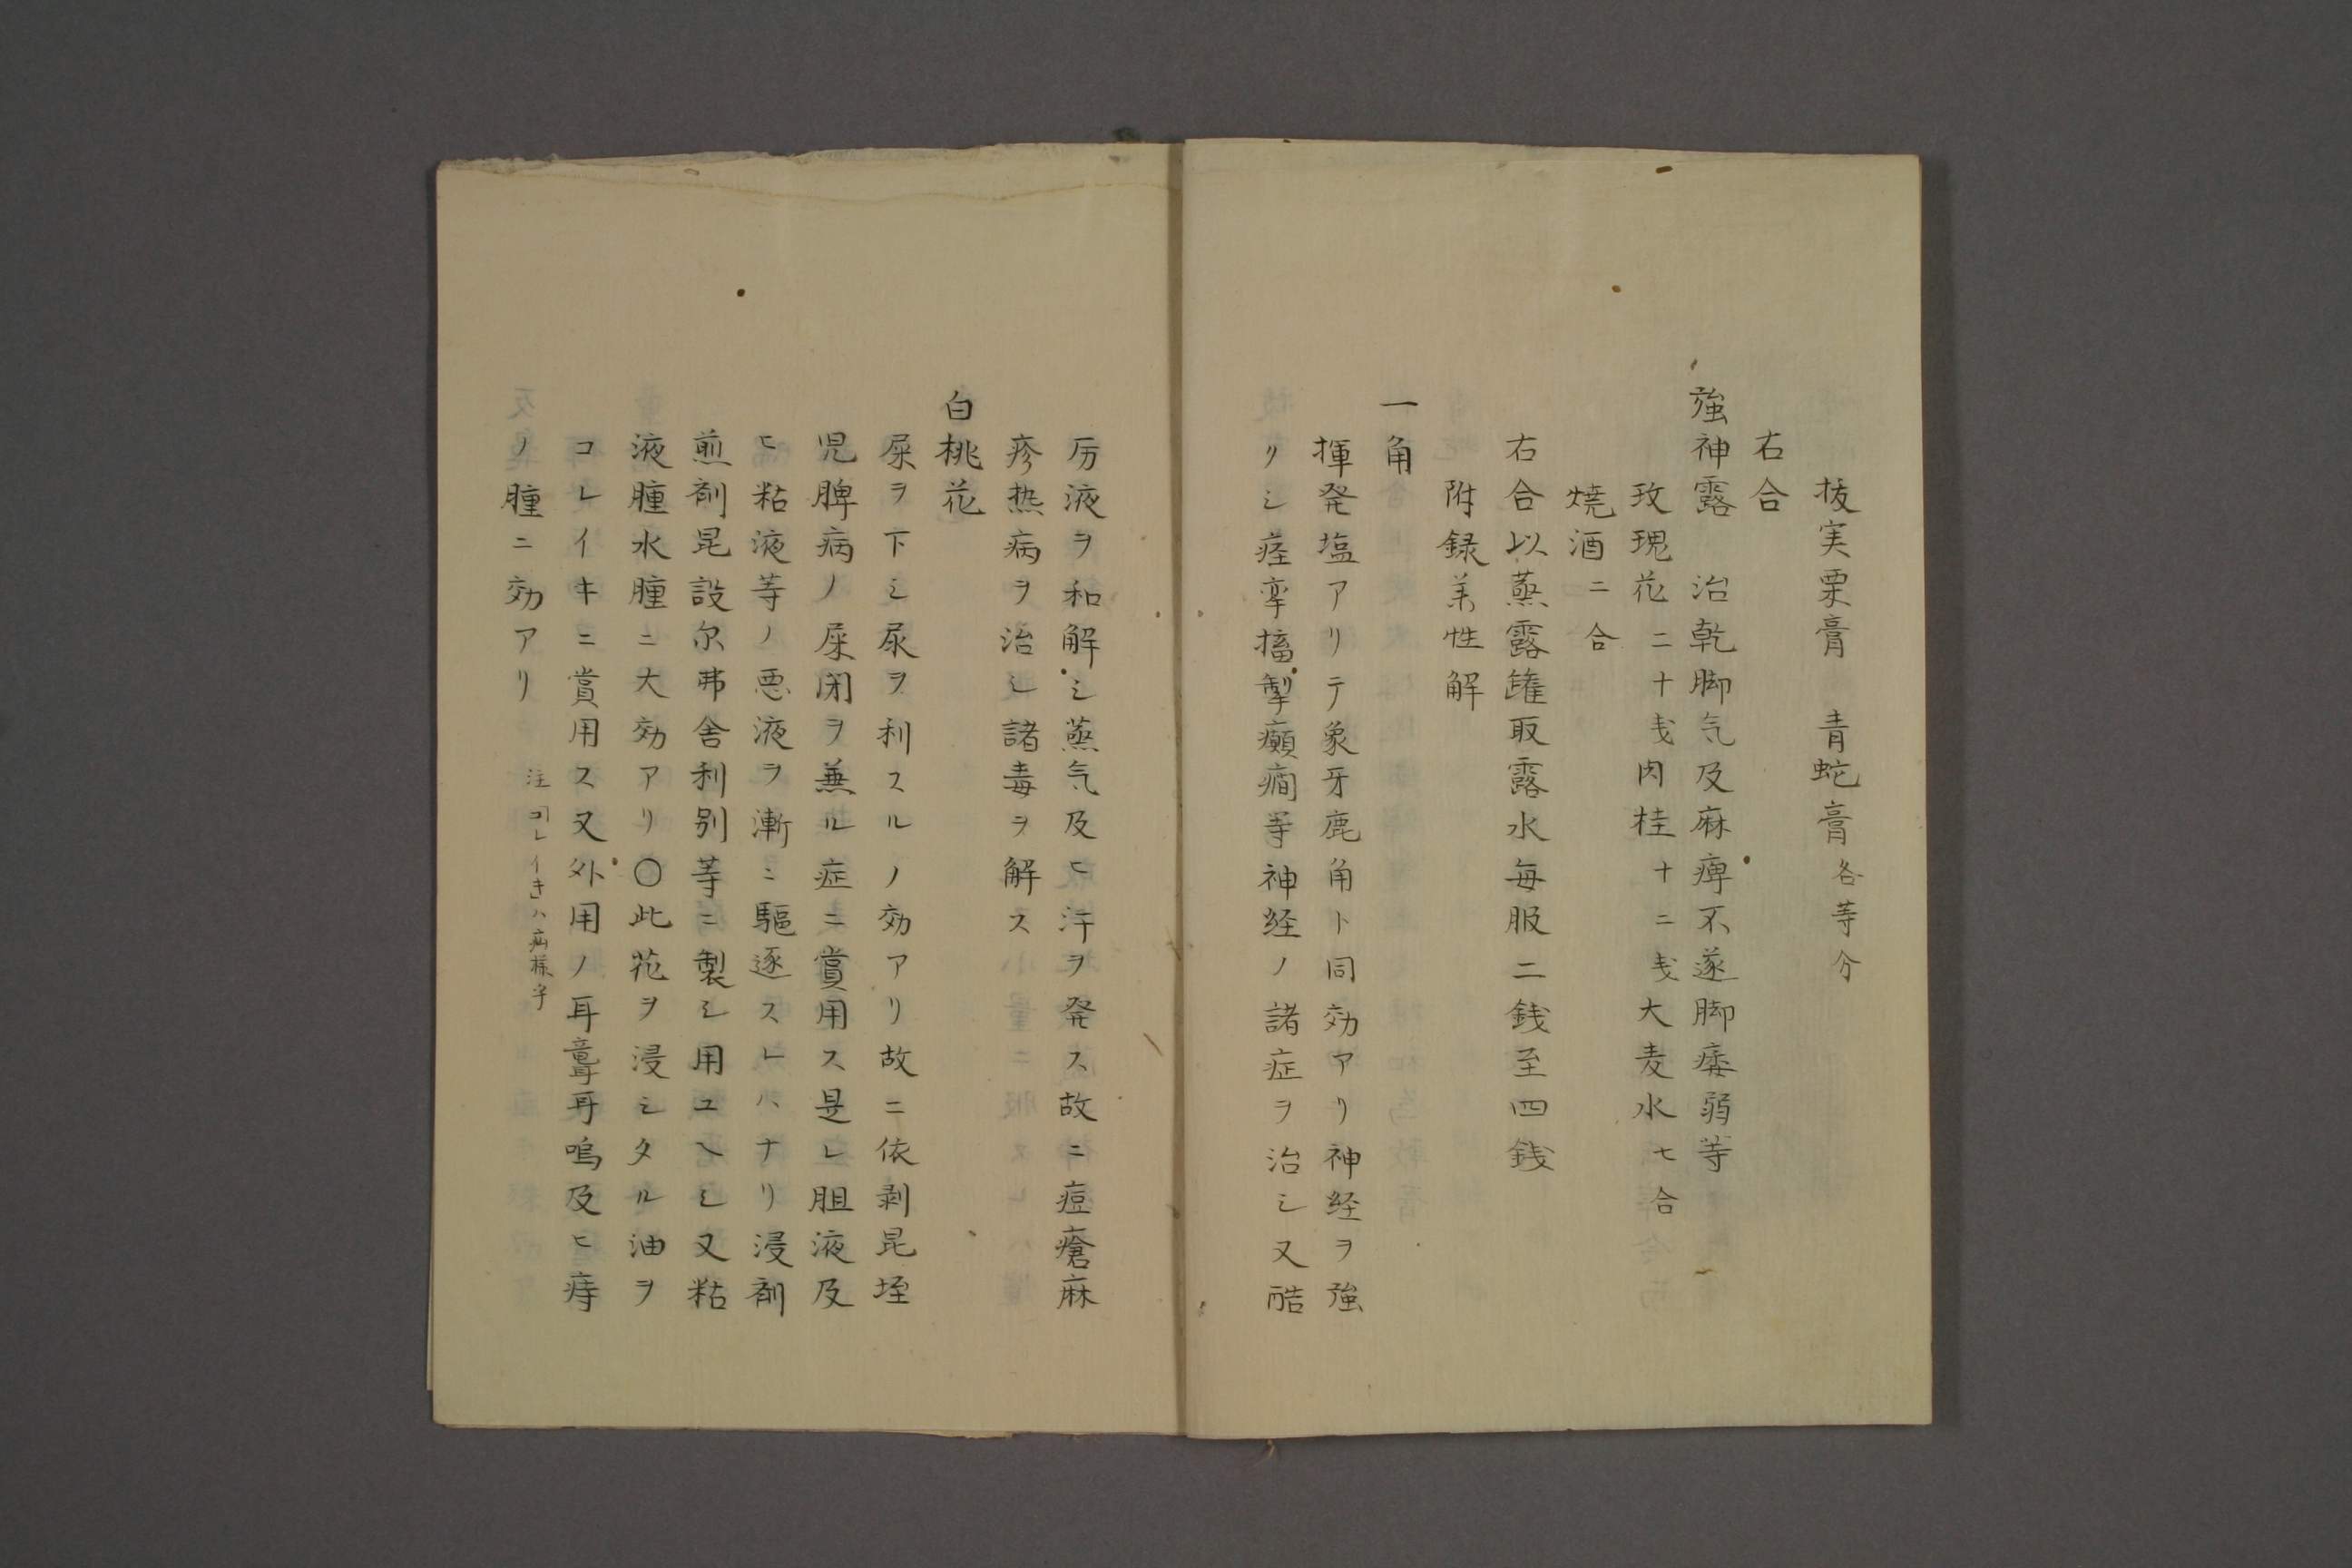 抜実栗膏　青蛇膏 各等分
右合
強神露　治乾脚气及麻痺不遂脚痿弱等
玫瑰花 二十戋 肉桂 十二戋 大麦水 七合
焼酒 二合
右合以蒸露罐取露水毎服二銭至四銭
附録薬性解
一角
揮発塩アリテ象牙鹿角ト同効アリ神経ヲ強
クシ痙挛搐掣癲癇等神経ノ諸症ヲ治シ又酷
厉液ヲ和解シ蒸气及ヒ汗ヲ発ス故ニ痘瘡麻
疹热病ヲ治シ諸毒ヲ解ス
白桃花
屎ヲ下シ尿ヲ利スルノ効アリ故ニ依剥昆垤
児脾病ノ屎闭ヲ兼ル症ニ賞用ス是レ胆液及
ヒ粘液等ノ悪液ヲ漸ニ驅逐スレハナリ浸剤
煎剤昆設尔弗舎利別等ニ製シ用ユヘシ又粘
液腫水腫ニ大効アリ〇此花ヲ浸シタル油ヲ
コレイキニ賞用ス又外用ノ耳聾耳鳴及ヒ痔
ノ腫ニ効アリ 注 コレイキハ病様字